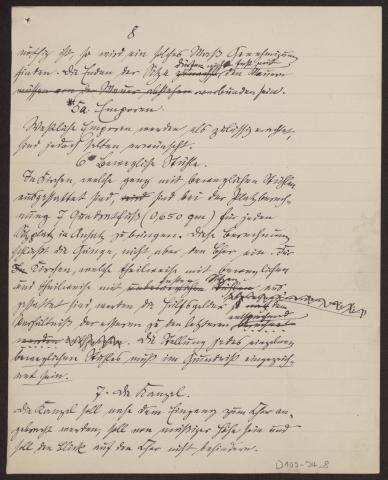 8
mäßig ist, so wird ein solches Maß Genehmigung
finden. Die Enden der Sitze dürfen nicht fest mit den Mauern
müssen von der Mauer abstehen verbunden sein.
5a Emporen.
Westliche Emporen werden als zulässig erachtet,
sind jedoch selten erwünscht.
6 Bewegliche Stühle.
In Kirchen, welche ganz mit beweglichen Stühlen
ausgestattet sind, wird sind bei der Platzberech-
nung 7 Quadratfuß (0,650 qm) für jeden
Sitzplatz in Ansatz zu bringen. Diese Berechnung
schließt die Gänge, nicht aber den Chor ein. Für
Kirchen, welche theilweise mit beweglichen
und theilweise mit festen Sitzen aus-
gestattet sind, werden die Hülfsgelder nach dem
Verhältniß der ersteren zu den letzteren entsprechend
werden. Die Stellung jedes einzelnen
beweglichen Stuhles muß im Grundriß eingezeich-
net sein.
7. Die Kanzel.
Die Kanzel soll nahe dem Eingang zum Chor an-
gebracht werden, soll von mäßiger Höhe sein und
soll den Blick auf den Chor nicht behindern.
D155-34_8